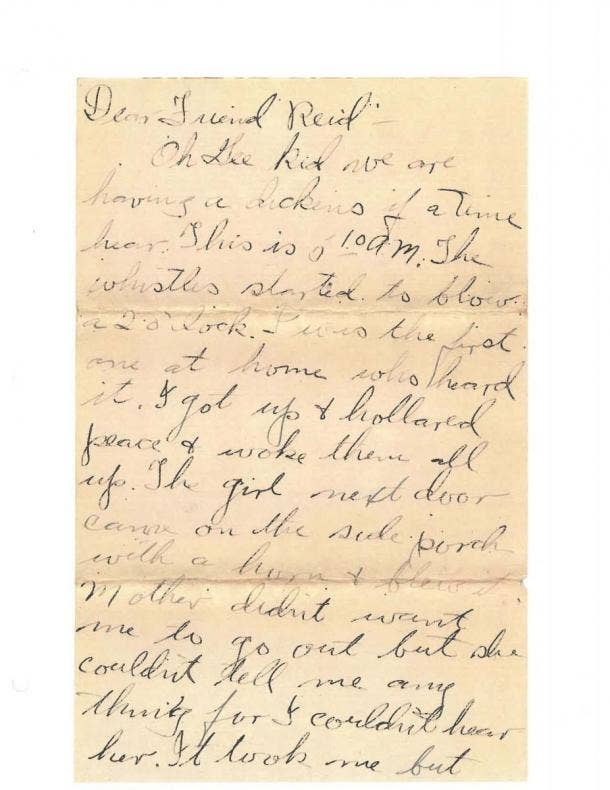 Dear Friend "Reid" -
Oh Gee kid we are
having a dickens of a time
hear. This is 10 A.M. The
whistles started to blow
a 2 o'clock. I was the first
one at home who heard
it. I got up & hollared
peace & woke them all
up. The girl next door
came on the side porch
with a horn & blew it.
Mother didn't want
me to go out but she
couldn't tell me any
thing for I couldn't hear
her. It took me but